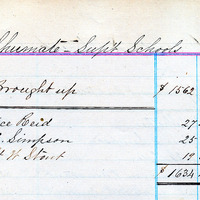 Shumate - Supt Schools
Brought up $1562
Reid 27
Simpson 25
W Stout 19
$1634